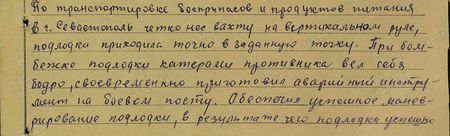 По транспортировке боеприпасов и продуктов питания
в г. Севастополь четко нес вахту на вертикальном руле,
подлодка приходила точно в заданную точку. При бом-
бежке подлодки катерами противника вел себя
бодро, своевременно приготовил аварийный инстру-
мент на боевом посту. Обеспечил успешное манев-
рирование подлодки, в результате чего подлодка успешно